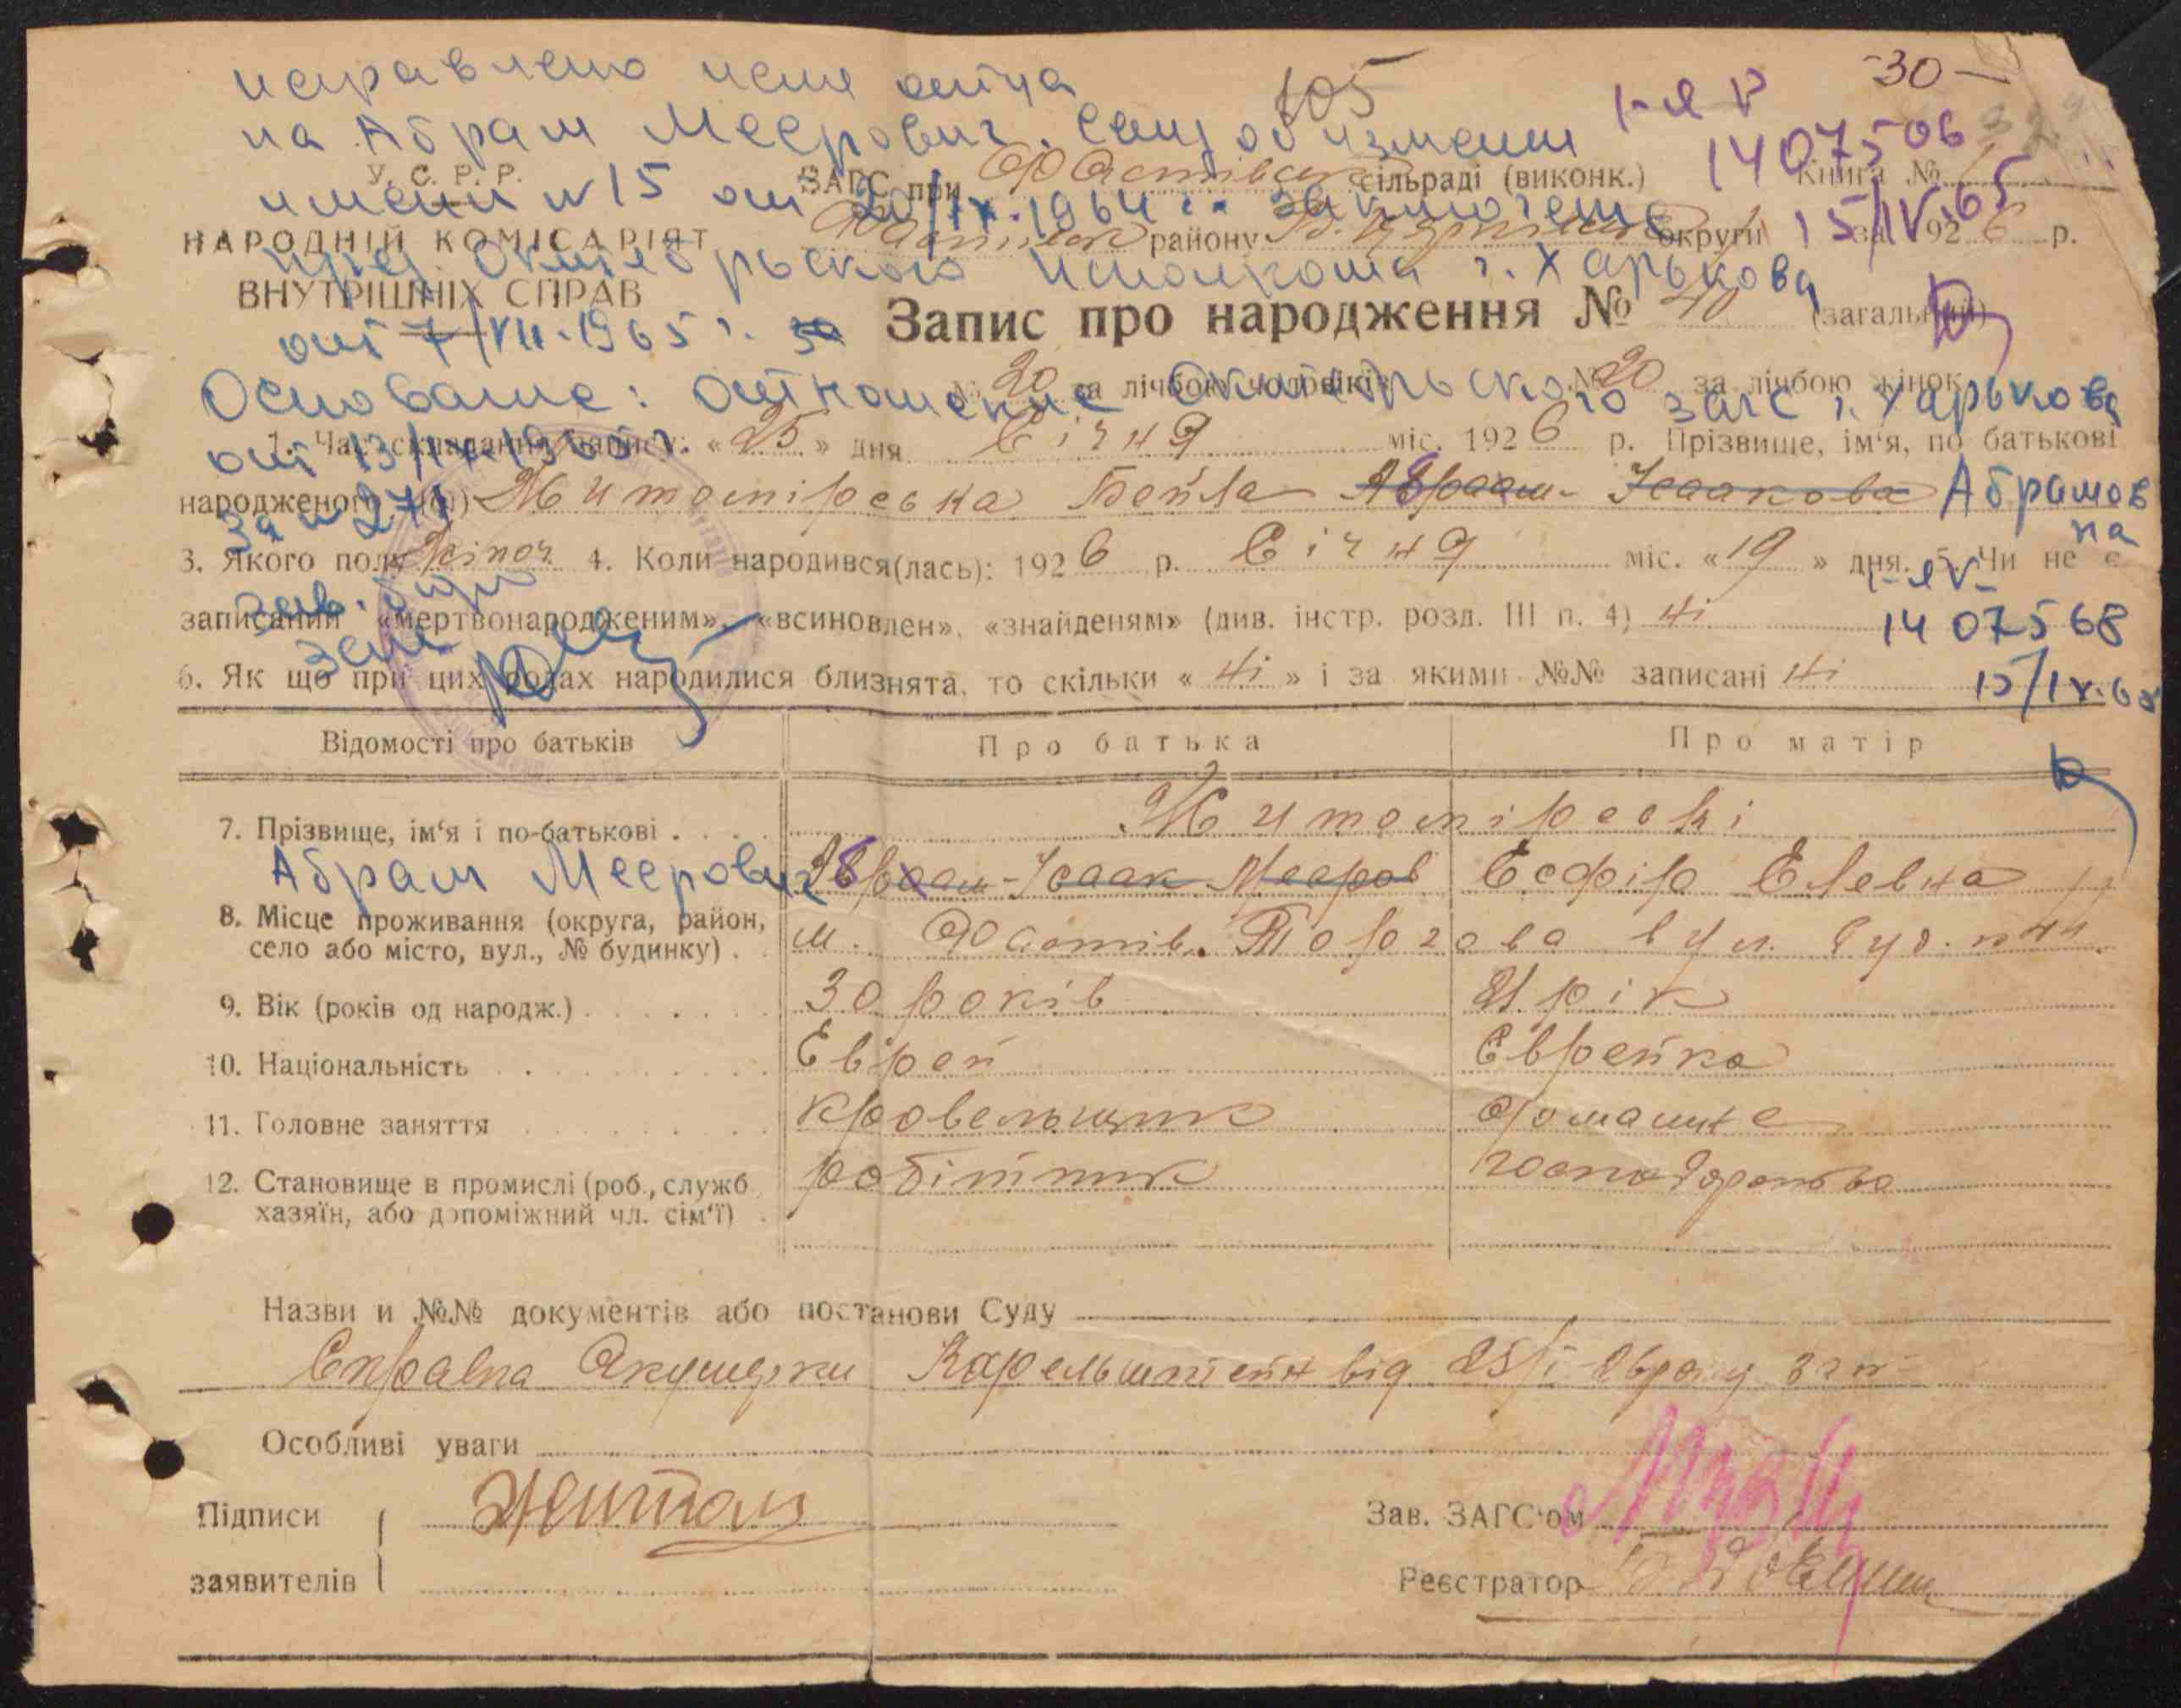 -30-
105
исправлено имя отца
на Абрам Меерович. Свид об изменен
имени N 15 от 20/IX.1964 г. заключение
пред. Октябрьского исполкома г. Харькова
от 7/VII.1965 г. за
Основание: отношение Октябрьского загс г. Харькова
от 13/
за N 271
Зав. бюро
Загс
I-я Р
1407506
15/IV.65
У. С. Р. Р.
НАРОДНІЙ КОМІСАРІЯТ
ВНУТРІШНІХ СПРАВ
ЗАГС при Фастівськ сільраді (виконк.) Книга №
Фастівськ району Б. Церківськ округи за 1926 р.
Запис про народження № 40 (загальний)
№ 20 за лічбою чоловіків № 20 за лічбою жінок
1. Час складання запису: «25» дня Січня міс. 1926 р. Прізвище, ім‘я, по батькові
народженого(ної) Житомірська Бейла Абраам-Ісаакова Абрамов
на
3. Якого полу жіноч 4. Коли народився(лась): 1926 р. Січня міс. «19» дня. 5. Чи не є
записаний «мертвонародженим», «всиновлен», «знайденям» (див. інстр. розд. III п. 4) Ні
1407568
6. Як що при цих родах народилися близнята, то скільки «Ні» і за якими №№ записані Ні
Відомості про батьків Про батька Про матір
7. Прізвище, ім‘я і по-батькові Житомірські
Абрам Меерович Абраам-Ісаак Меєров Есфір Елевна
8. Місце проживання (округа, район,
село або місто, вул., № будинку) м. Фастів. Торгова вул. буд. n 44
9. Вік (років од народж.) 30 років 21 рік
10. Національність Еврей Еврейка
11. Головне заняття Кровельщик домашнє
12. Становище в промислі (роб., служб.,
хазяїн, або допоміжний чл. сім‘ї) робітник господарство
Назви и №№ документів або постанови Суду
Справка Акушерки Карельштейн від 25/I
Особливі уваги
Підписи Житом
заявителів
Зав. ЗАГС‘ом
Реєстратор